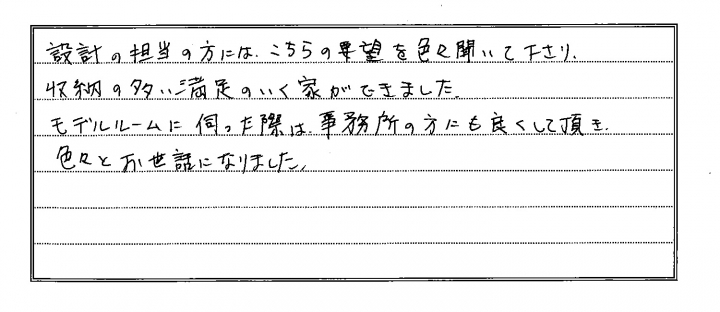 設計の担当の方には、こちらの要望を色々聞いて下さり、
収納の多い満足のいく家ができました。
モデルルームに伺った際は、事務所の方にも良くして頂き、
色々とお世話になりました。